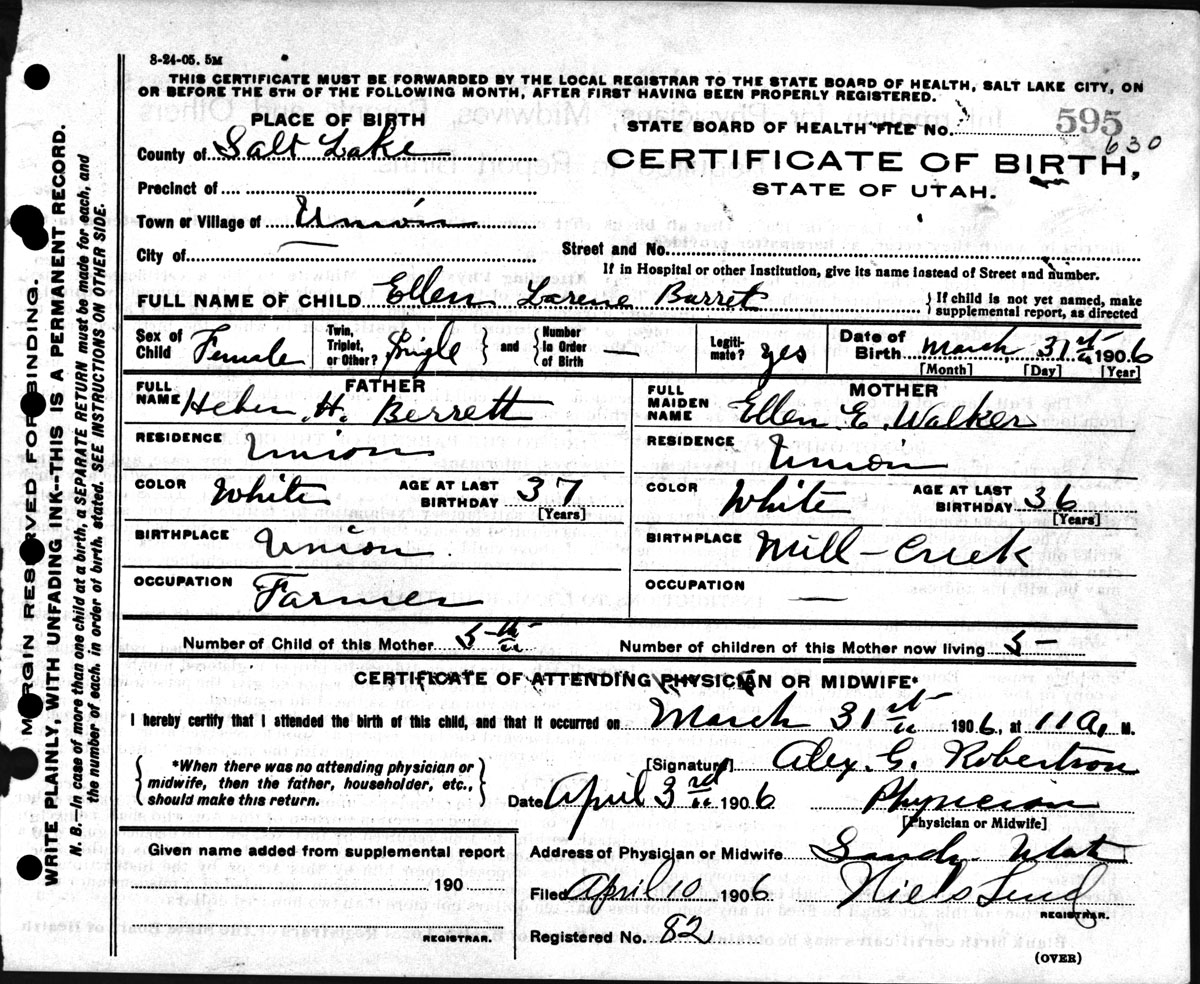 8-24-05. 5M
THIS CERTIFICATE MUST BE FORWARDED BY THE LOCAL REGISTRAR TO THE STATE BOARD OF HEALTH, SALT LAKE CITY, ON
OR BEFORE THE 5TH OF THE FOLLOWING MONTH, AFTER FIRST HAVING BEEN PROPERLY REGISTERED.
PLACE OF BIRTH
County of Salt Lake
Precinct of
Town or Village of Union
City of
STATE BOARD OF HEALTH FILE No. 595
630
CERTIFICATE OF BIRTH,
STATE OF UTAH.
Street and No.
If in Hospital or other Institution, give its name instead of Street and number.
FULL NAME OF CHILD Ellen Larene Barret
If child is not yet named, make
supplemental report, as directed
Sex of Child Female
Twin, Triplet, or Other? Single and Number in Order of Birth —
Legitimate? yes
Date of Birth March 31st 1906
[Month] [Day] [Year]
FATHER
FULL NAME Heber H. Berrett
RESIDENCE Union
COLOR White AGE AT LAST BIRTHDAY 37
[Years]
BIRTHPLACE Union
OCCUPATION Farmer
MOTHER
FULL MAIDEN NAME Ellen E. Walker
RESIDENCE Union
COLOR White AGE AT LAST BIRTHDAY 36
[Years]
BIRTHPLACE Mill-Creek
OCCUPATION —
Number of Child of this Mother 5th Number of children of this Mother now living 5-
CERTIFICATE OF ATTENDING PHYSICIAN OR MIDWIFE*
I hereby certify that I attended the birth of this child, and that it occurred on March 31st 1906, at 11 a, M.
*When there was no attending physician or
midwife, then the father, householder, etc.,
should make this return.
[Signature] Alex. G. Robertson
Date April 3rd 1906 Physician
[Physician or Midwife]
Given name added from supplemental report
190
REGISTRAR.
Address of Physician or Midwife Sandy Utah
Filed April 10 1906 Niels Lind
REGISTRAR.
Registered No. 82
(OVER)
MARGIN RESERVED FOR BINDING.
WRITE PLAINLY, WITH UNFADING INK--THIS IS A PERMANENT RECORD.
N. B.--In case of more than one child at a birth, a SEPARATE RETURN must be made for each, and
the number of each, in order of birth, stated. SEE INSTRUCTIONS ON OTHER SIDE.